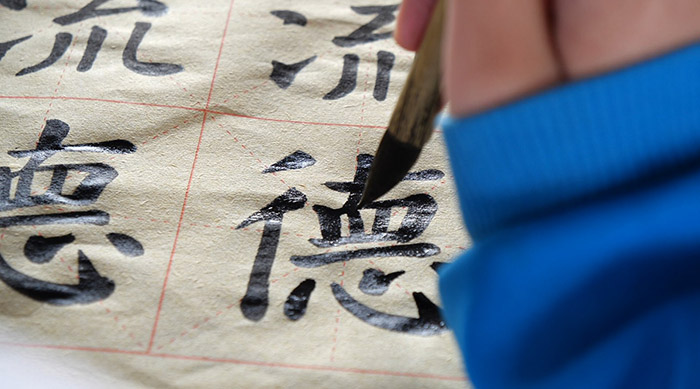 流 流
德 德